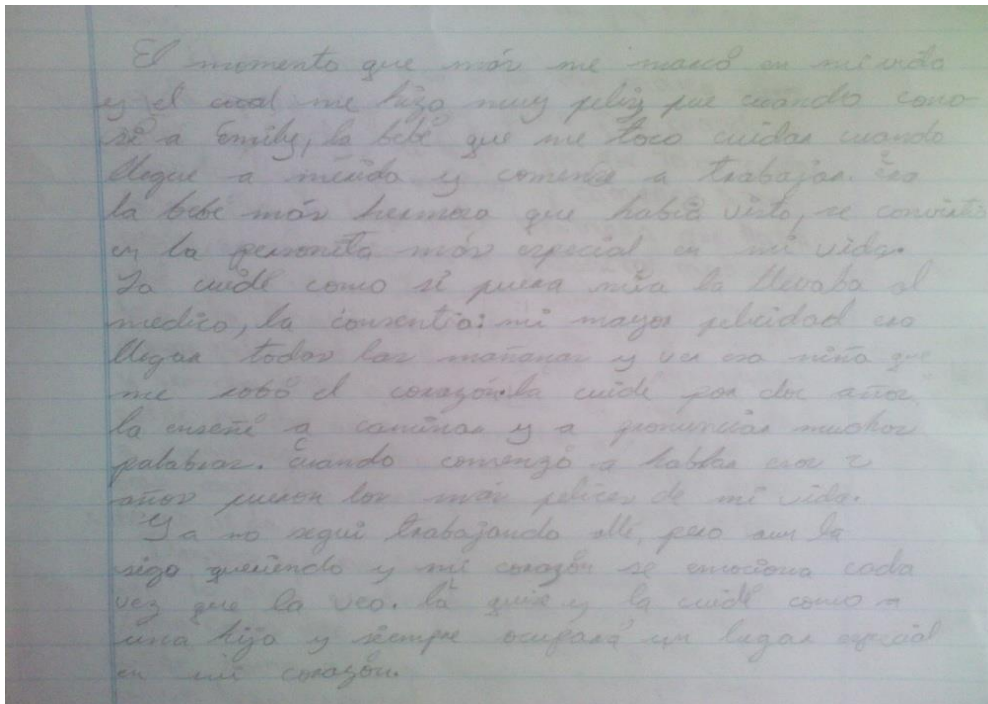 El momento que más me marcó en mi vida
y el cual me hizo muy feliz fue cuándo cono-
sí a Emily, la bebé que me toco cuidar cuando
llegue a mérida y comense a trabajar. Era
la bebé más hermosa que había visto, se convirtió
en la personita más especial en mi vida.
La cuidé como si fuera mía la llevaba al
medico, la consentia: mi mayor felicidad era
llegar todas las mañanas y ver esa niña que
me robó el corazón. la cuide por dos años
la enseñé a caminar y a pronunciar muchas
palabras. Cuando comenzó a hablar esos 2
años fueron los más felices de mi vida.
Ya no seguí trabajando allí, pero aun la
sigo queriendo y mi corazón se emociona cada
vez que la veo. la quise y la cuidé como
una hija y siempre ocupará un lugar especial
en mi corazón.